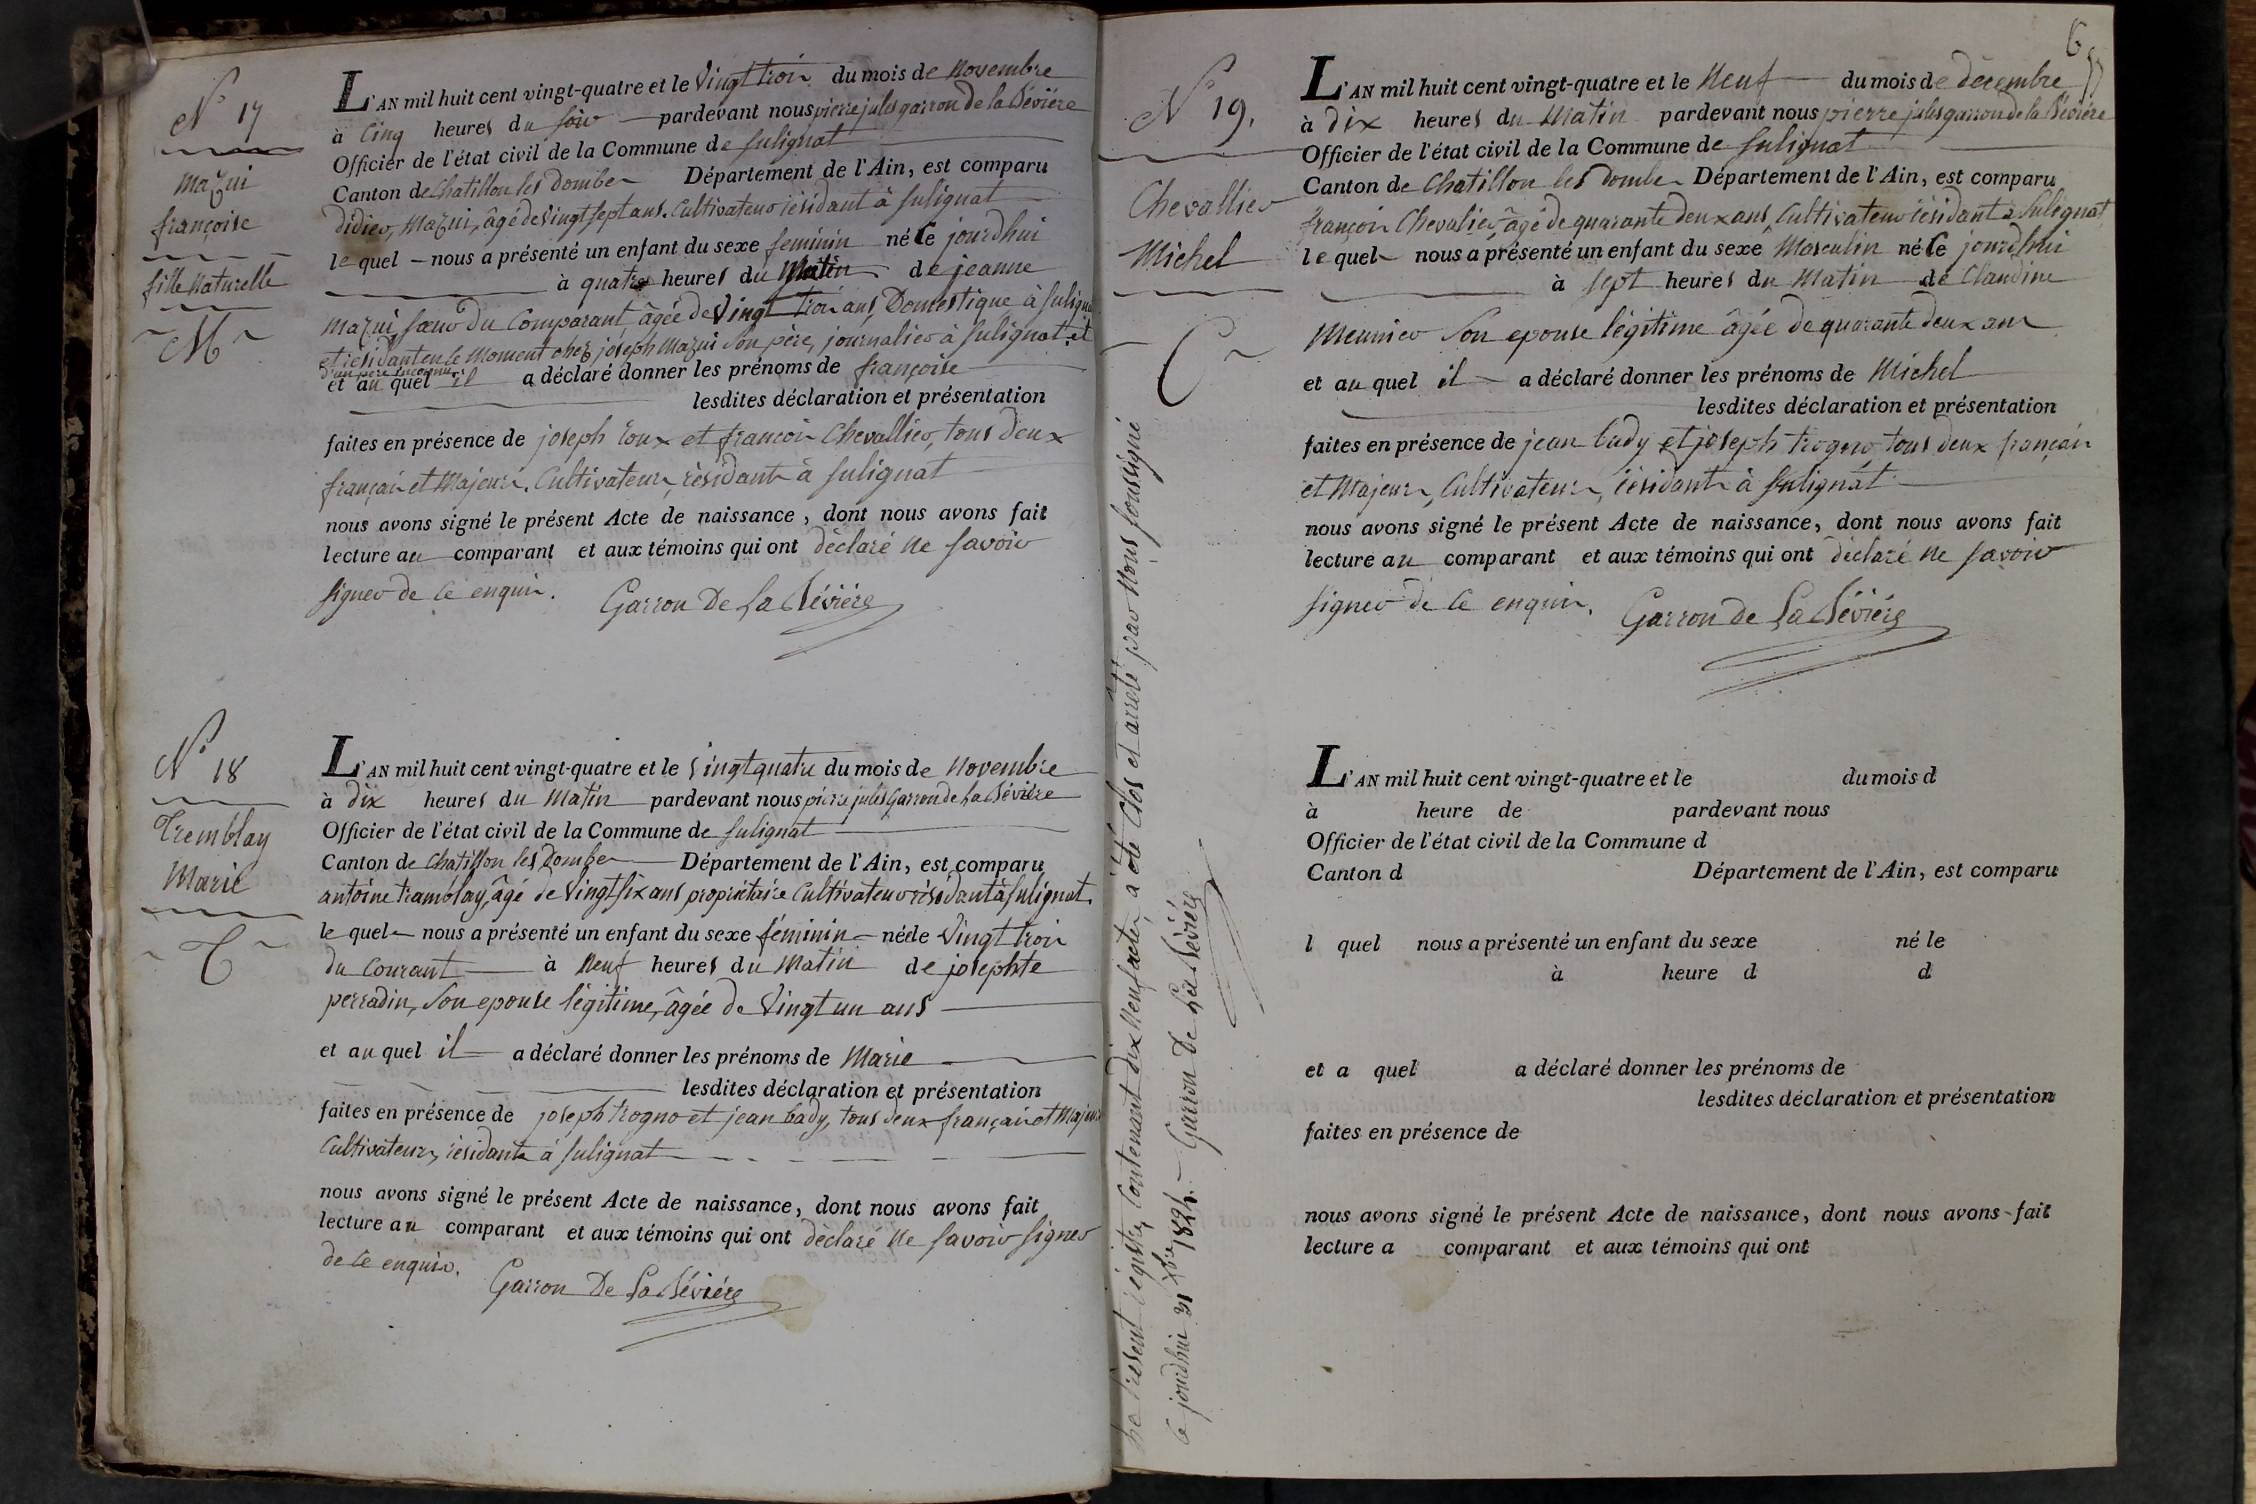 N° 17
Mazui
françoise
fille Naturelle
M
L'AN mil huit cent vingt-quatre et le Vingt trois du mois de Novembre
à Cinq heures du soir pardevant nous pierre jules garron de la Bévière
Officier de l'état civil de la Commune de sulignat
Canton de Chatillon les dombes Département de l'Ain, est comparu
didier, Mazui, âgé de vingt sept ans, Cultivateur résidant à sulignat
le quel nous a présenté un enfant du sexe feminin né Ce jourdhui
à quatre heures du Matin de jeanne
Mazui, sœur du Comparant, âgée de Vingt trois ans, Domestique à sulignat
et résidante en ce Moment chez joseph Mazui son père, journalier à sulignat, et
d'un père inconnu
et au quel il a déclaré donner les prénoms de françoise
lesdites déclaration et présentation
faites en présence de joseph roux et françois Chevallier, tous deux
français et Majeurs, Cultivateurs, résidants à sulignat
nous avons signé le présent Acte de naissance, dont nous avons fait
lecture au comparant et aux témoins qui ont déclaré ne savoir
signer de ce enquis.
Garron De La Bévière
N° 18
Tremblay
Marie
T
L'AN mil huit cent vingt-quatre et le vingt quatre du mois de Novembre
à dix heures du Matin pardevant nous pierre jules Garron de La Bévière
Officier de l'état civil de la Commune de sulignat
Canton de Chatillon les Dombes Département de l'Ain, est comparu
antoine tramblay, âgé de Vingt six ans propriétaire Cultivateur résidant à sulignat.
le quel nous a présenté un enfant du sexe féminin née le Vingt trois
du Courant à Neuf heures du Matin de josephte
perradin, Son epouse légitime, âgée de Vingt un ans
et au quel il a déclaré donner les prénoms de Marie
lesdites déclaration et présentation
faites en présence de joseph trogno et jean bady, tous deux français et Majeurs
Cultivateurs, résidants à sulignat
nous avons signé le présent Acte de naissance, dont nous avons fait
lecture au comparant et aux témoins qui ont déclaré Ne savoir signer
de ce enquis.
Garron De La Bévière
6
N° 19.
Chevallier
Michel
C
L'AN mil huit cent vingt-quatre et le Neuf du mois de décembre
à dix heures du Matin pardevant nous pierre jules garron de la Bévière
Officier de l'état civil de la Commune de sulignat
Canton de Chatillon les Dombes Département de l'Ain, est comparu
françois Chevalier, âgé de quarante deux ans, Cultivateur résidant à sulignat
le quel nous a présenté un enfant du sexe Masculin né Ce jourdhui
à sept heures du Matin de Claudine
Meunier Son epouse légitime âgée de quarante deux ans
et au quel il a déclaré donner les prénoms de Michel
lesdites déclaration et présentation
faites en présence de jean bady et joseph trogno tous deux français
et Majeurs, Cultivateurs, résidants à sulignat
nous avons signé le présent Acte de naissance, dont nous avons fait
lecture au comparant et aux témoins qui ont déclaré ne savoir
signer de ce enquis.
Garron de La Bévière
L'AN mil huit cent vingt-quatre et le du mois d
à heure de pardevant nous
Officier de l'état civil de la Commune d
Canton d Département de l'Ain, est comparu
l quel nous a présenté un enfant du sexe né le
à heure d d
et a quel a déclaré donner les prénoms de
lesdites déclaration et présentation
faites en présence de
nous avons signé le présent Acte de naissance, dont nous avons fait
lecture a comparant et aux témoins qui ont
Le présent régistre Contenant dix Neuf actes, a été Clos et arrêté par Nous soussigné
Ce jourdhui 31 xbre 1824. Garron De La Bévière